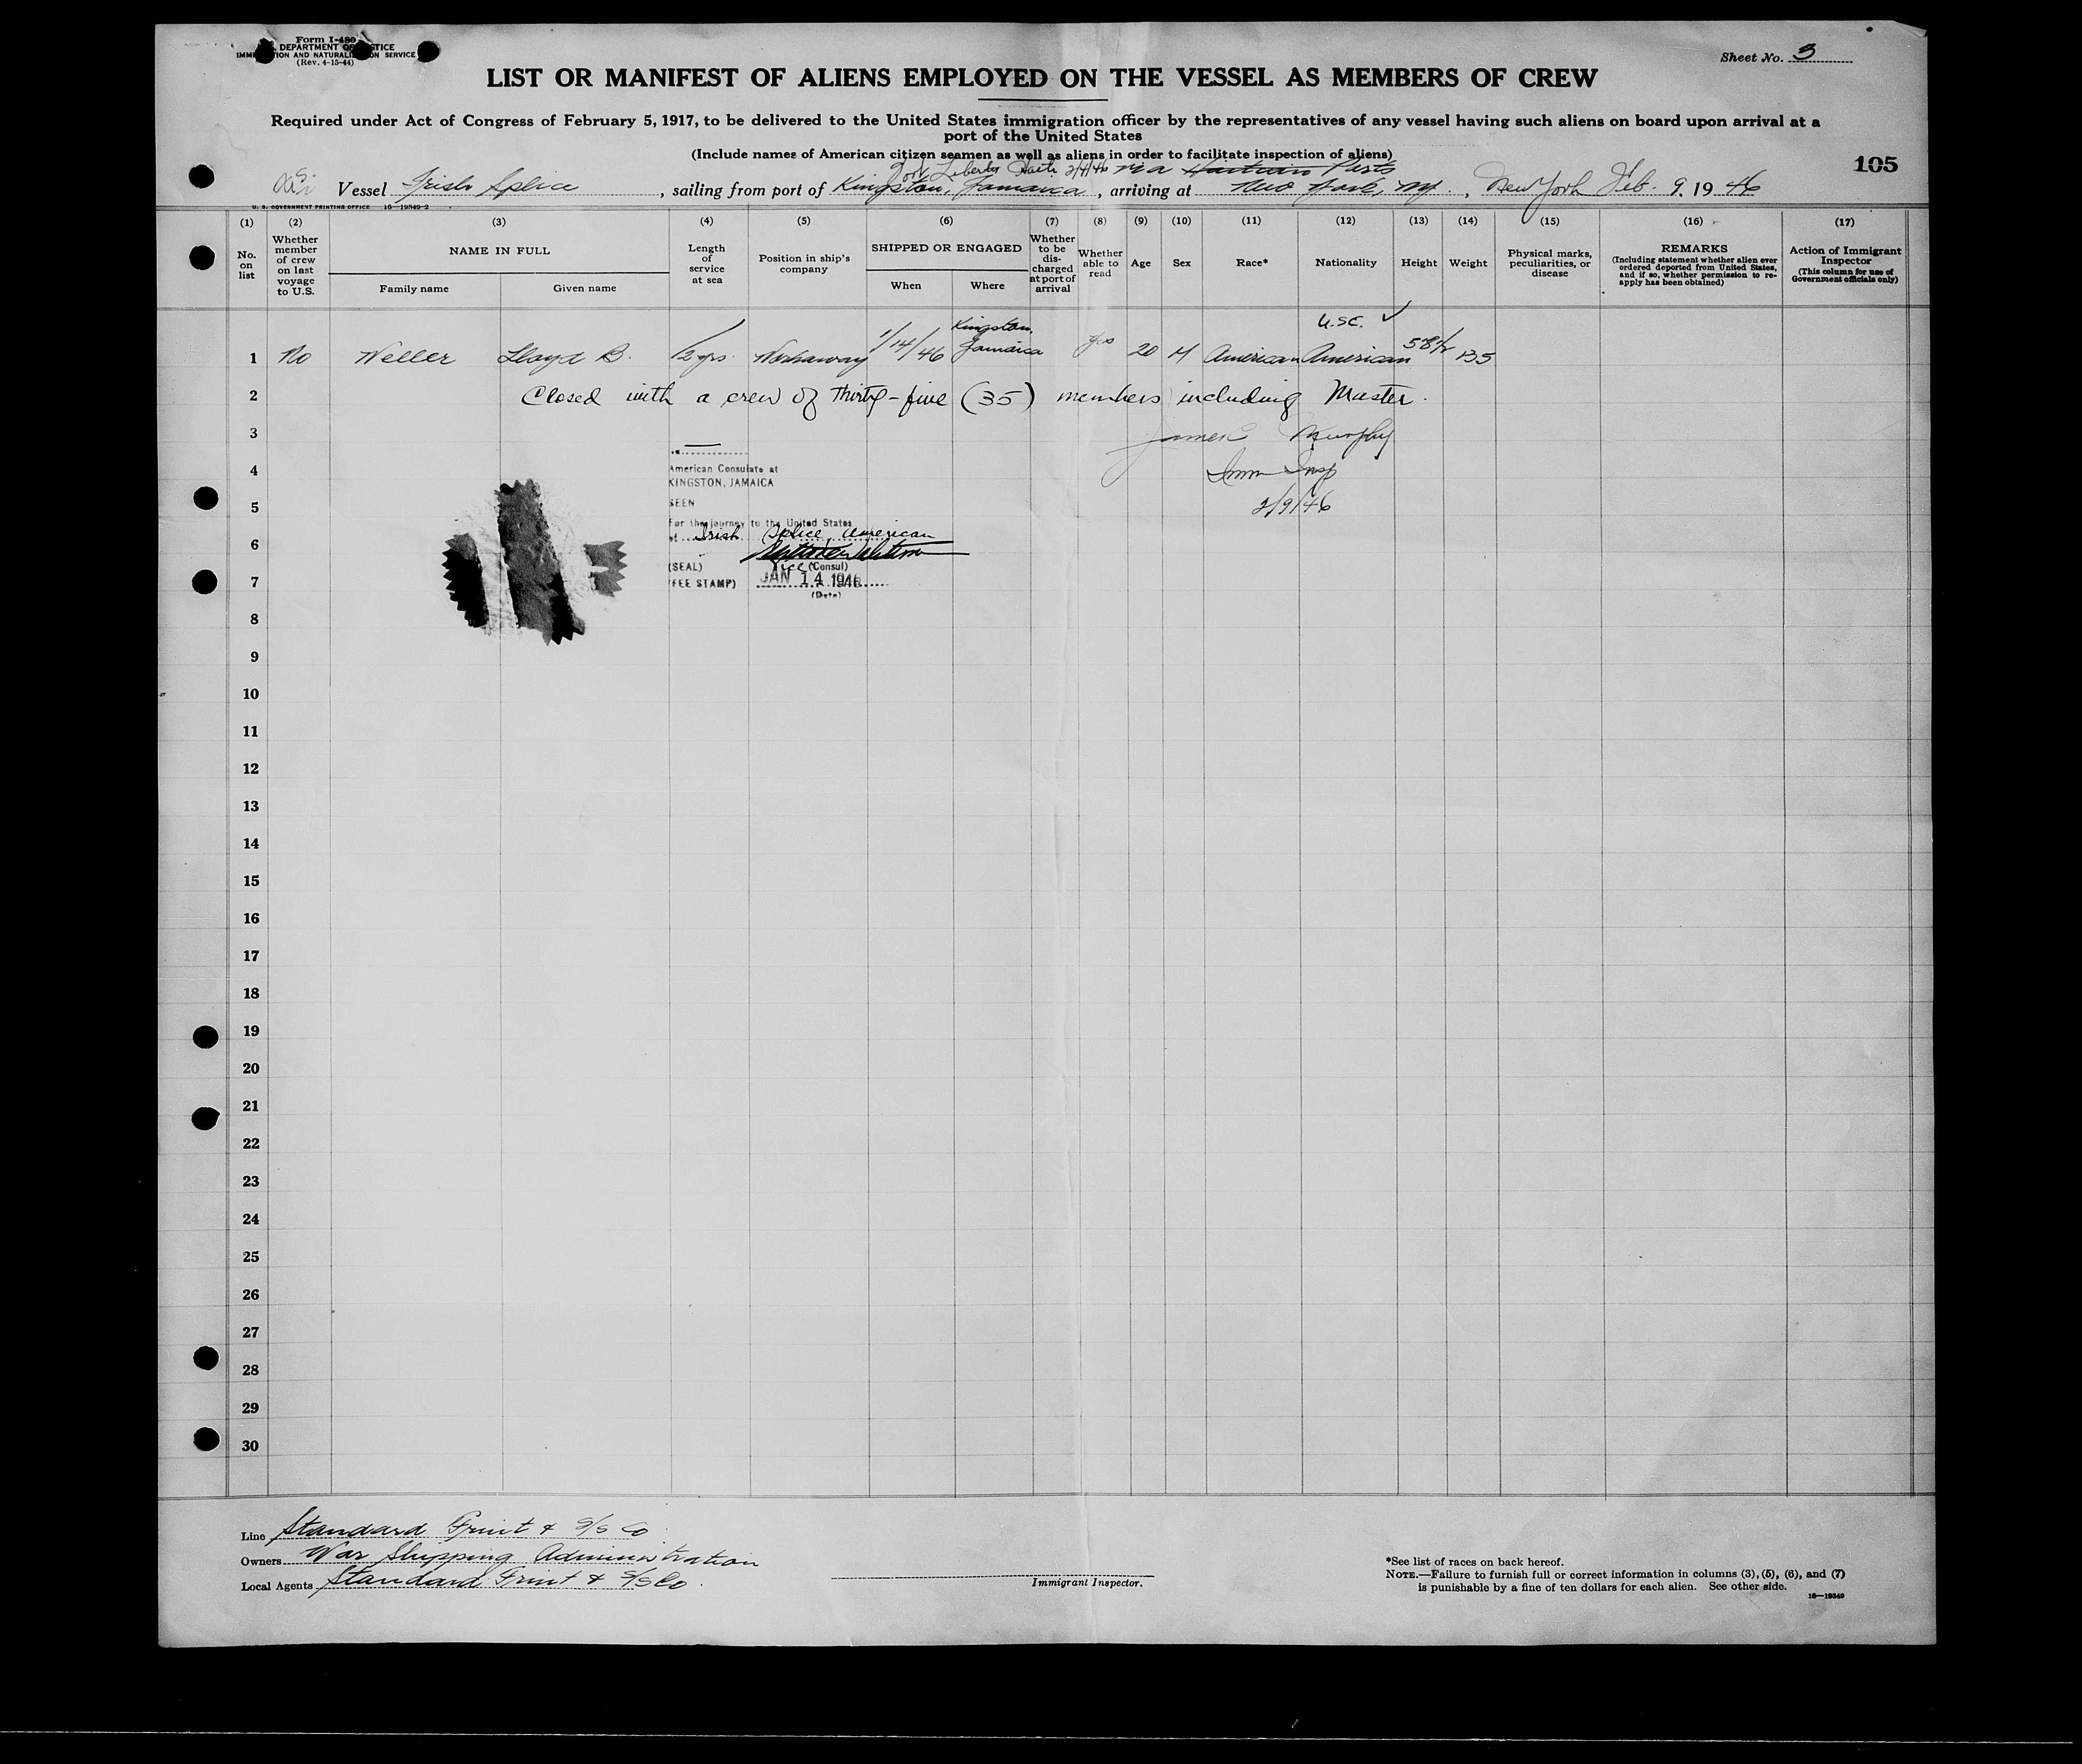 Form I-480
U. S. DEPARTMENT OF JUSTICE
IMMIGRATION AND NATURALIZATION SERVICE
(Rev. 4-15-44)
Sheet No. 3
LIST OR MANIFEST OF ALIENS EMPLOYED ON THE VESSEL AS MEMBERS OF CREW
Required under Act of Congress of February 5, 1917, to be delivered to the United States immigration officer by the representatives of any vessel having such aliens on board upon arrival at a
port of the United States
(Include names of American citizen seamen as well as aliens in order to facilitate inspection of aliens)
105
Port Liberty Haiti 2/4/46 via Haitian Ports
Vessel Irish Splice, sailing from port of Kingston, Jamaica, arriving at New York, NY., New York Feb. 9, 19 46
U. S. GOVERNMENT PRINTING OFFICE 16-19349-2
(1) (2) (3) (4) (5) (6) (7) (8) (9) (10) (11) (12) (13) (14) (15) (16) (17)
No. on list
Whether member of crew on last voyage to U.S.
NAME IN FULL
Family name
Given name
Length of service at sea
Position in ship's company
SHIPPED OR ENGAGED
When
Where
Whether to be discharged at port of arrival
Whether able to read
Age
Sex
Race*
Nationality
Height
Weight
Physical marks, peculiarities, or disease
REMARKS
(Including statement whether alien ever ordered deported from United States, and if so, whether permission to reapply has been obtained)
Action of Immigrant Inspector
(This column for use of Government officials only)
U.S.C. ✓
1 No Weller Lloyd B. 1/2 yrs. Workaway 1/14/46 Kingston, Jamaica yes 20 M American American 5 8 1/2 135
2 Closed with a crew of Thirty-five (35) members including Master.
3 James Murphy
4 Imm Insp
5 2/9/46
American Consulate at
KINGSTON, JAMAICA
SEEN
For the journey to the United States
of Irish Splice, American
Vice (Consul)
(SEAL)
(FEE STAMP) JAN 14 1946
(Date)
6
7
8
9
10
11
12
13
14
15
16
17
18
19
20
21
22
23
24
25
26
27
28
29
30
Line Standard Fruit & S/S Co
Owners War Shipping Administration
Local Agents Standard Fruit & S/S Co.
Immigrant Inspector.
*See list of races on back hereof.
NOTE.—Failure to furnish full or correct information in columns (3), (5), (6), and (7)
is punishable by a fine of ten dollars for each alien. See other side.
16-19349